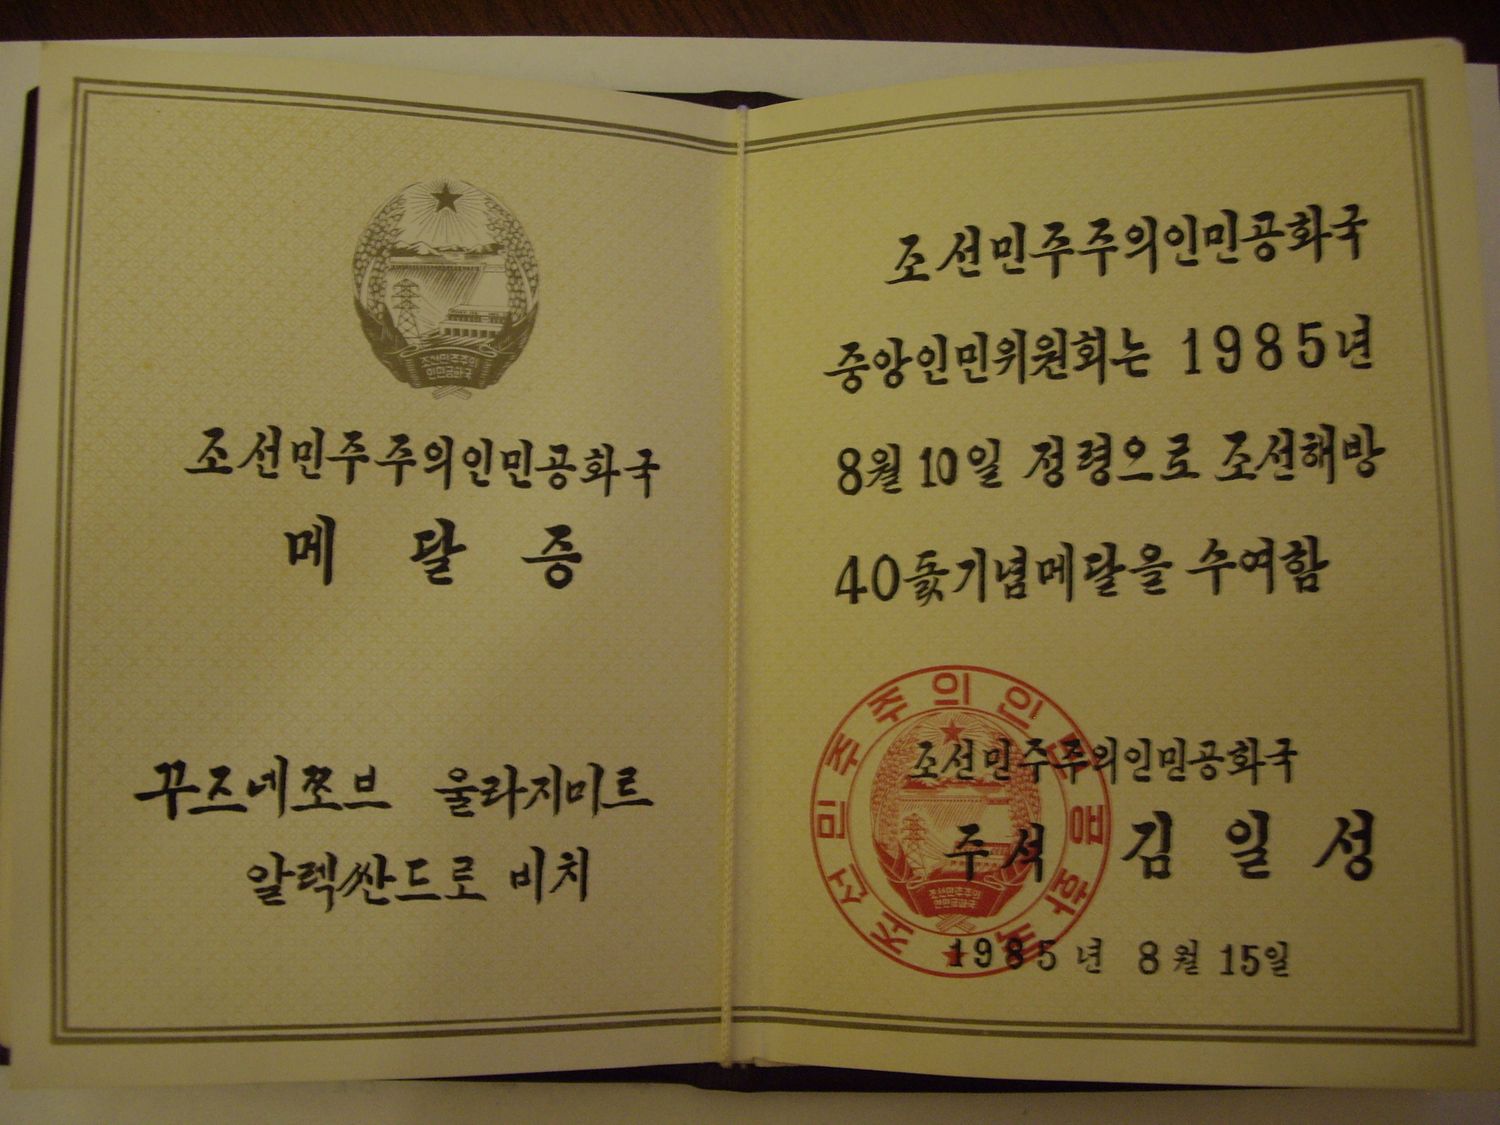 조선민주주의
인민공화국
조선민주주의인민공화국
메달증
꾸즈네쪼브 울라지미르
알렉싼드로비치
조선민주주의인민공화국
중앙인민위원회는 1985년
8월 10일 정령으로 조선해방
40돐기념메달을 수여함
조선민주주의인민공화국
조선민주주의인민공화국
주석 김일성
조선민주주의
인민공화국
1985년 8월 15일